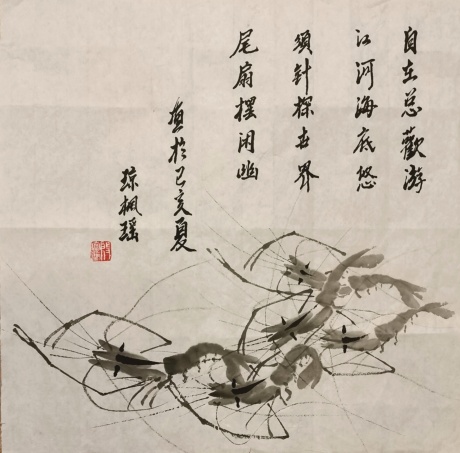 自在总歡游
江河海底悠
须针探世界
尾扇摆闲幽
画於己亥夏
琼枫瑶